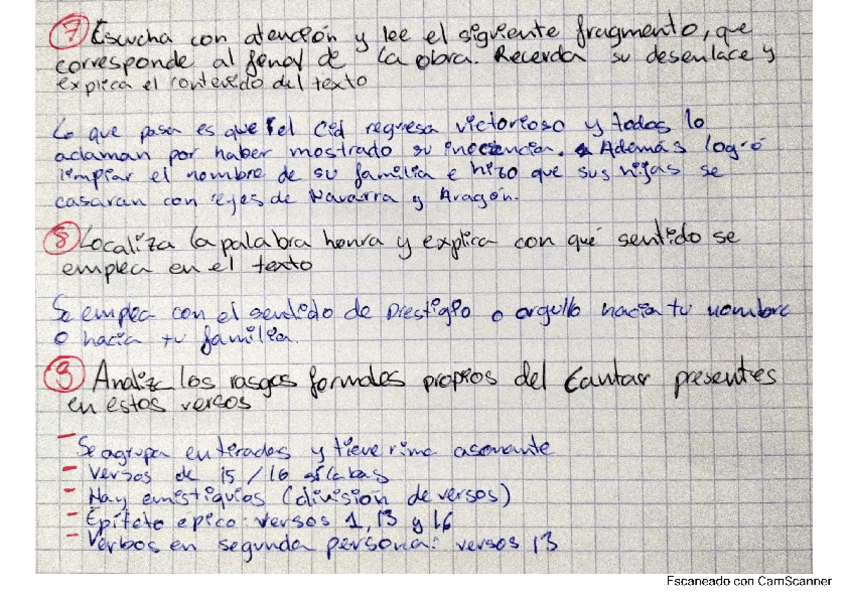 7 Escucha con atención y lee el siguiente fragmento, que
corresponde al final de la obra. Recuerda su desenlace y
explica el contenido del texto
Lo que pasa es que el Cid regresa victorioso y todos lo
aclaman por haber mostrado su inocencia. Además logró
limpiar el nombre de su familia e hizo que sus hijas se
casaran con reyes de Navarra y Aragón.
8 Localiza la palabra honra y explica con qué sentido se
emplea en el texto
Se emplea con el sentido de prestigio o orgullo hacia tu nombre
o hacia tu familia.
9 Analiza los rasgos formales propios del Cantar presentes
en estos versos
- Se agrupa en tiradas y tiene rima asonante
- Versos de 15/16 sílabas
- Hay emistiquios (division de versos)
- Epíteto epico: versos 1, 13 y 16
- Verbos en segunda persona: versos 13
Escaneado con CamScanner